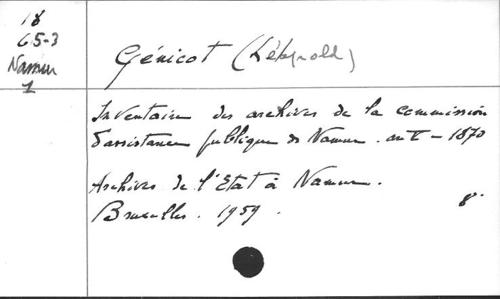 18
65-3
Namur
1
Génicot (Léopold)
Inventaire des archives de la commission
d'assistance publique de Namur. ant - 1870
Archives de l'Etat à Namur.
Bruxelles. 1959.
8°